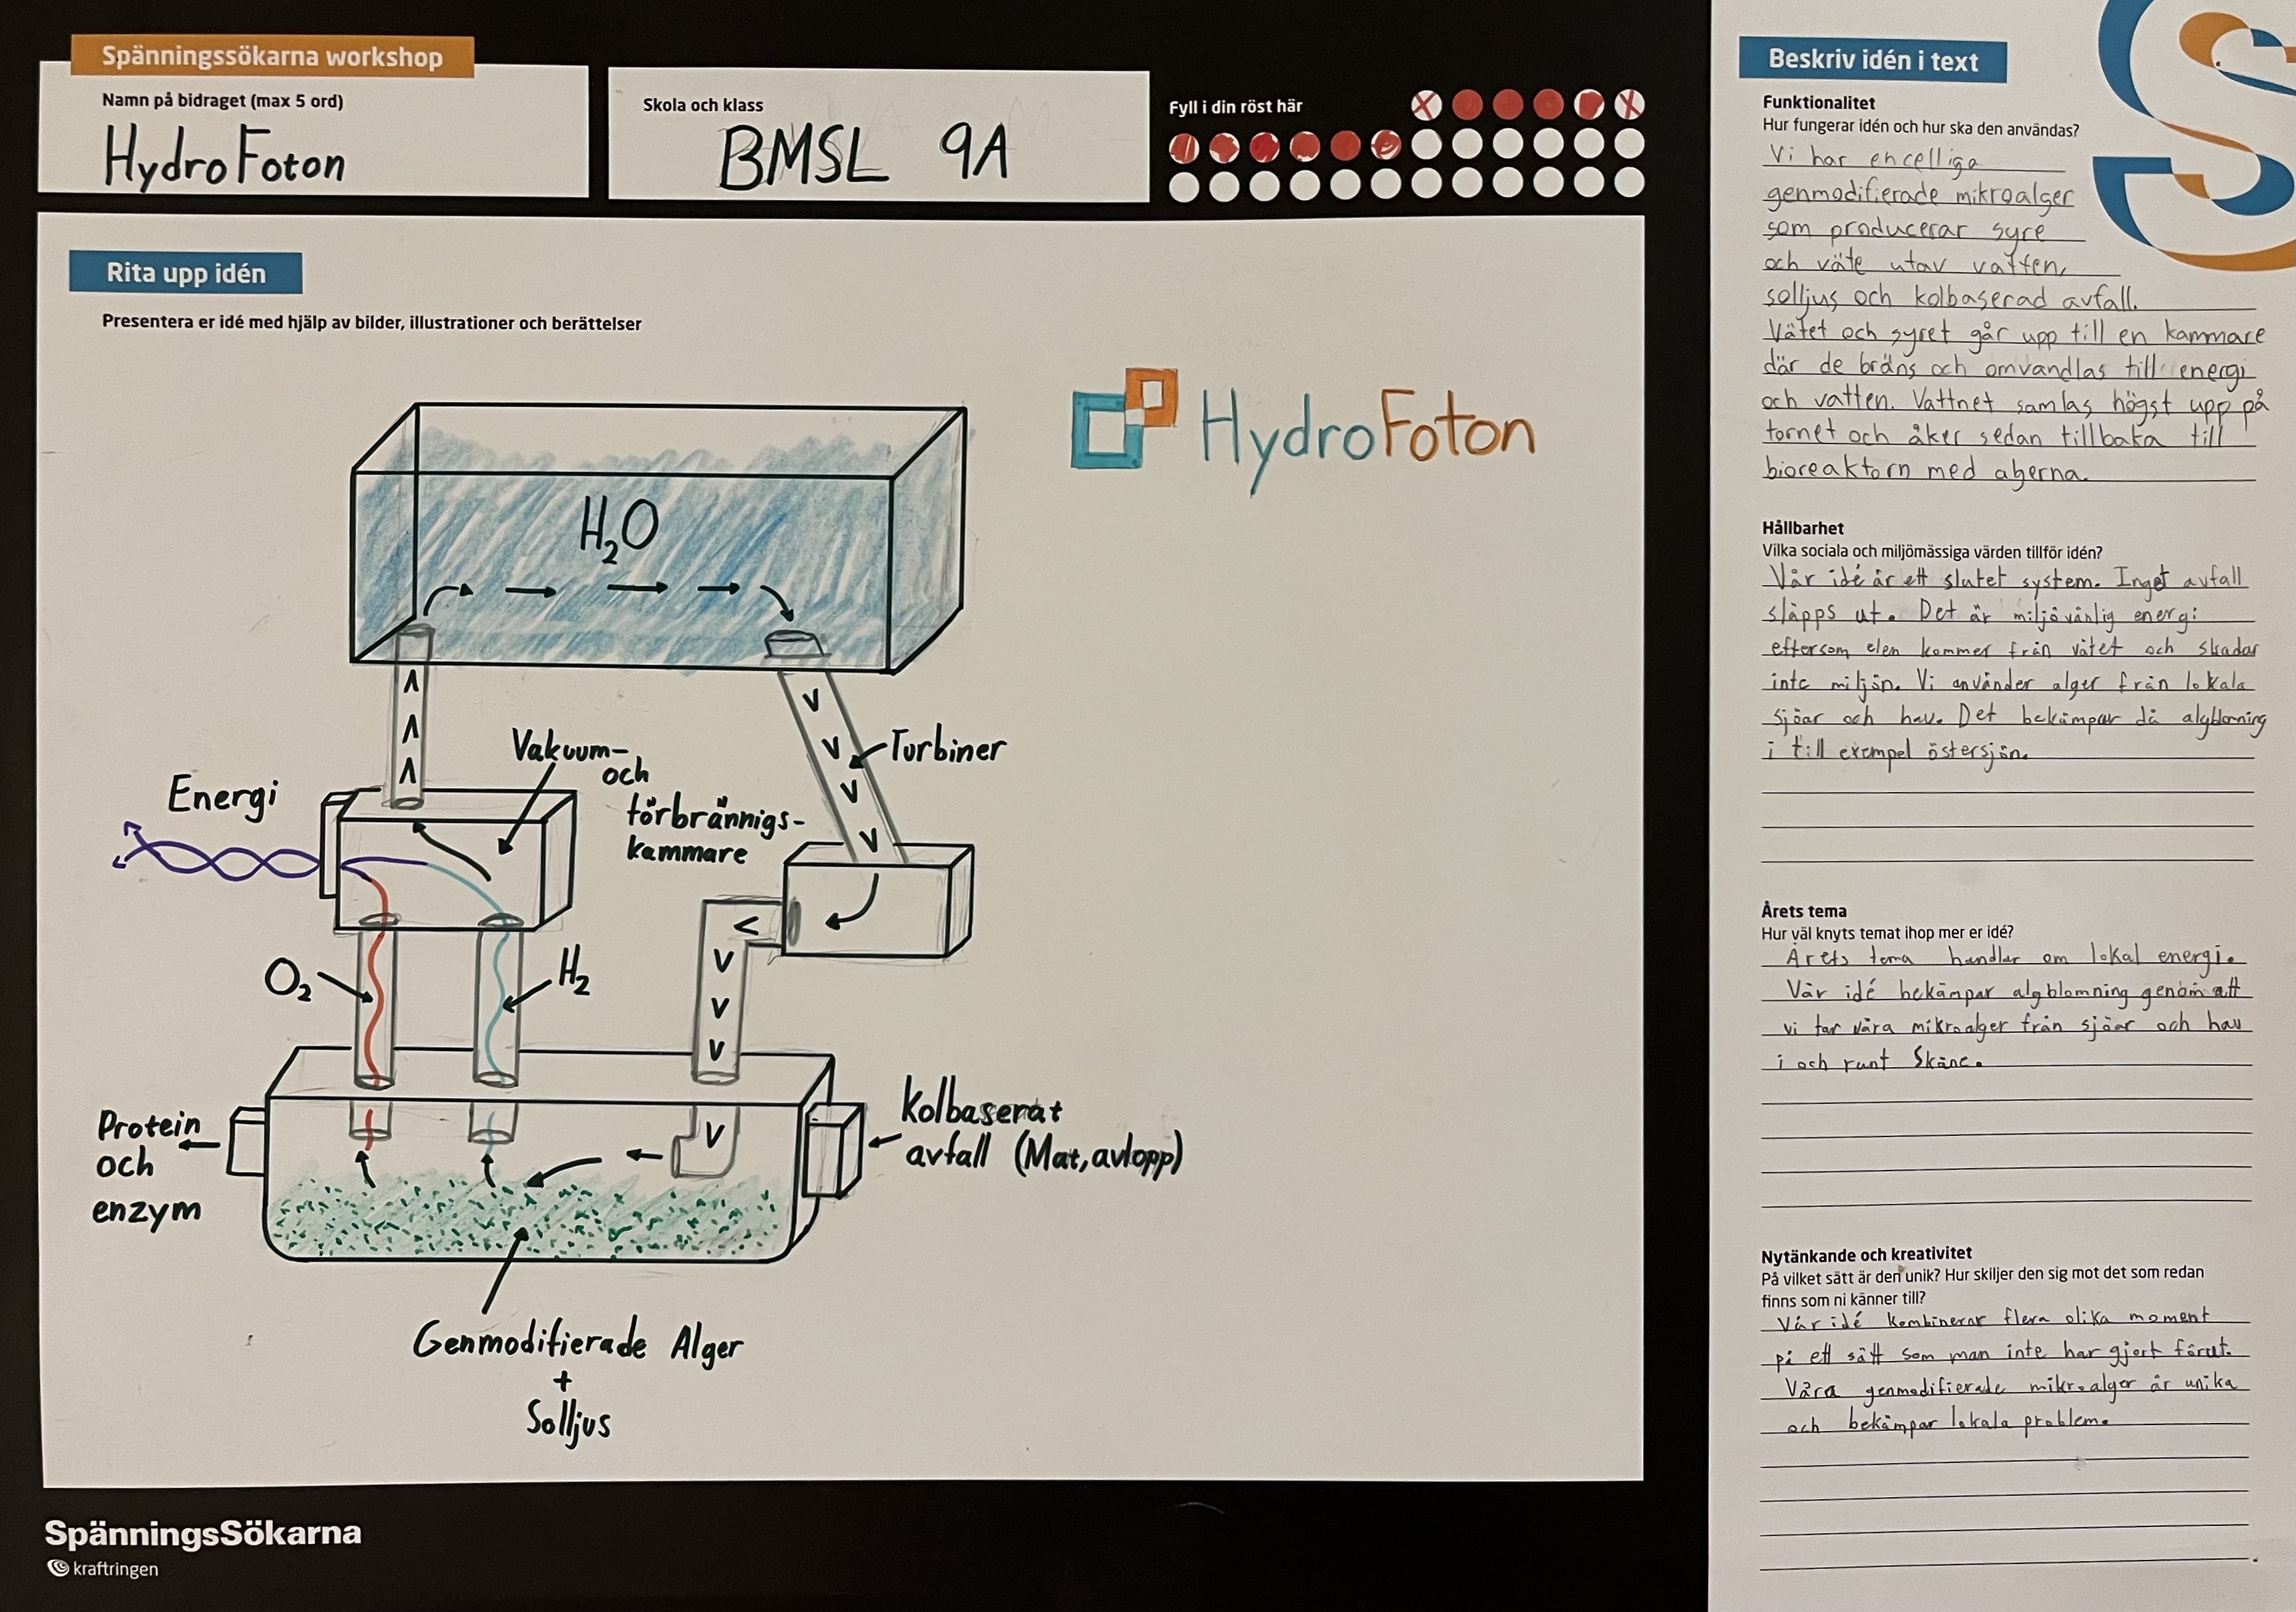 Spänningssökarna workshop
Namn på bidraget (max 5 ord)
HydroFoton
Skola och klass
BMSL 9A
Fyll i din röst här
Rita upp idén
Presentera er idé med hjälp av bilder, illustrationer och berättelser
HydroFoton
H₂O
Vakuum-
och
förbrännigs-
kammare
Turbiner
Energi
O₂
H₂
Protein
och
enzym
Kolbaserat
avfall (Mat, avlopp)
Genmodifierade Alger
+
Solljus
SpänningsSökarna
kraftringen
Beskriv idén i text
Funktionalitet
Hur fungerar idén och hur ska den användas?
Vi har encelliga
genmodifierade mikroalger
som producerar syre
och väte utav vatten,
solljus och kolbaserad avfall.
Vätet och syret går upp till en kammare
där de bräns och omvandlas till energi
och vatten. Vattnet samlas högst upp på
tornet och åker sedan tillbaka till
bioreaktorn med algerna.
Hållbarhet
Vilka sociala och miljömässiga värden tillför idén?
Vår idé är ett slutet system. Inget avfall
släpps ut. Det är miljövänlig energi
eftersom elen kommer från vätet och skadar
inte miljön. Vi använder alger från lokala
sjöar och hav. Det bekämpar då algblomning
i till exempel östersjön.
Årets tema
Hur väl knyts temat ihop mer er idé?
Årets tema handlar om lokal energi.
Vår idé bekämpar algblomning genom att
vi tar våra mikroalger från sjöar och hav
i och runt Skåne.
Nytänkande och kreativitet
På vilket sätt är den unik? Hur skiljer den sig mot det som redan
finns som ni känner till?
Vår idé kombinerar flera olika moment
på ett sätt som man inte har gjort förut.
Våra genmodifierade mikroalger är unika
och bekämpar lokala problem.